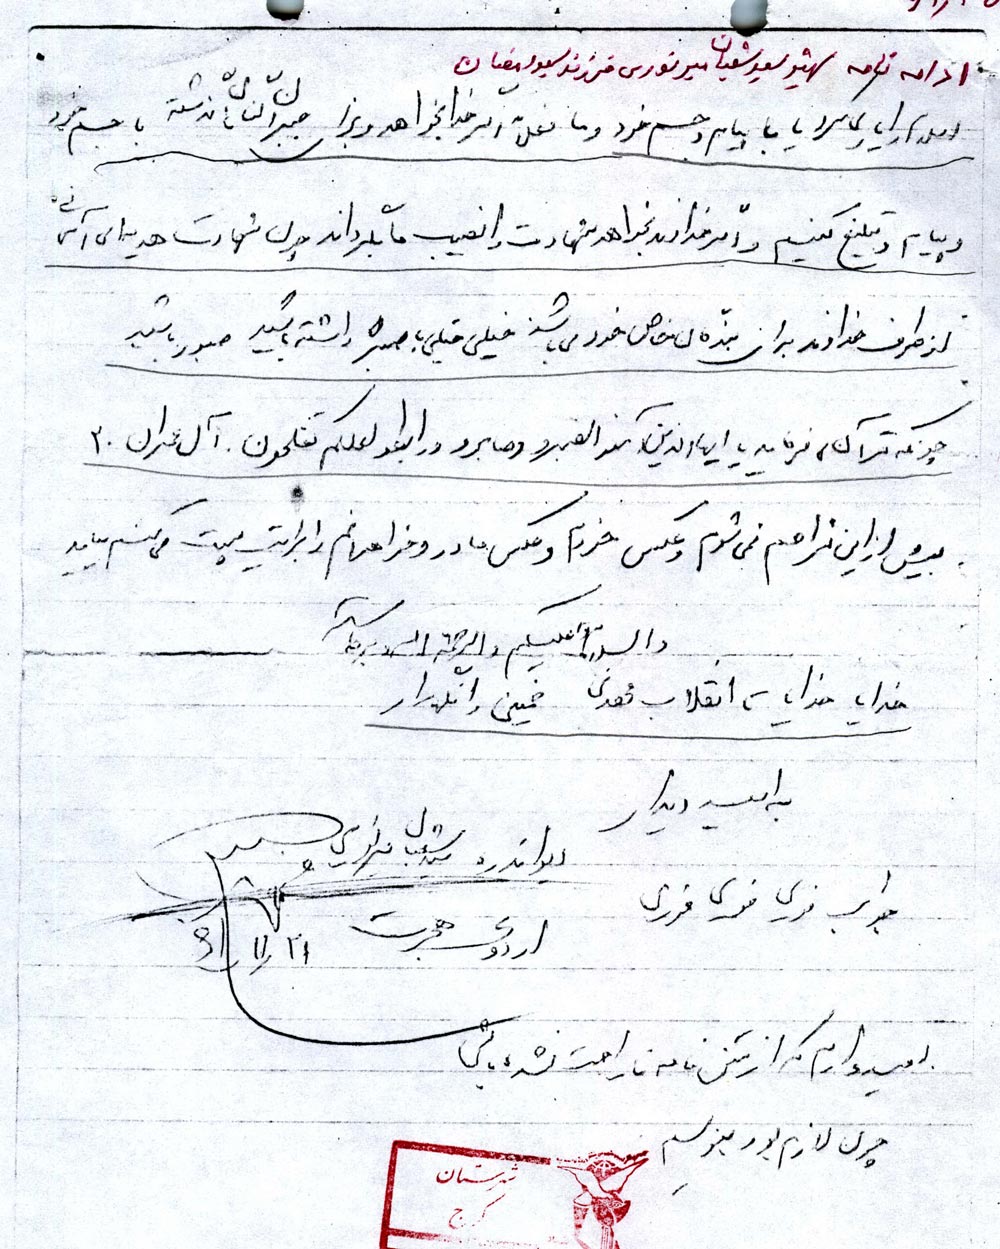 ادامه نامه شهید سید شعبان میرنوری فرزند سید رمضان
را یاری کرد یا با پیام و جسم خود و ما فعلاً اگر خدا بخواهد و برای جبران گناهان گذشته با جسم خود
و پیام و تبلیغ کنیم و اگر خداوند بخواهد شهادت را نصیب ما بگرداند چون شهادت هدیه‌ای
از طرف خداوند برای بنده‌های خاص خود می‌باشد خیلی خیلی باید صبر داشته باشید صبور باشید
چونکه قرآن می‌فرماید یا ایها الذین آمنوا اصبرو و صابرو و رابطو لعلکم تفلحون . آل عمران ۲۰۰
بیش از این مزاحم نمی‌شوم و عکس خودم و عکس مادر و خواهرانم را برایت پست می‌کنم بیاید
والسلام علیکم و الرحمة الله و برکاته
خدایا خدایا تا انقلاب مهدی خمینی را نگهدار
به امید دیدار
دیواندره سید شعبان میرنوری
جواب فوری فوری فوری
اردوی هجرت
۶۱/۱۱/۲۱
امیدوارم که از متن نامه ناراحت نشده باشی
چون لازم بود بنویسم
شهرستان
کرج